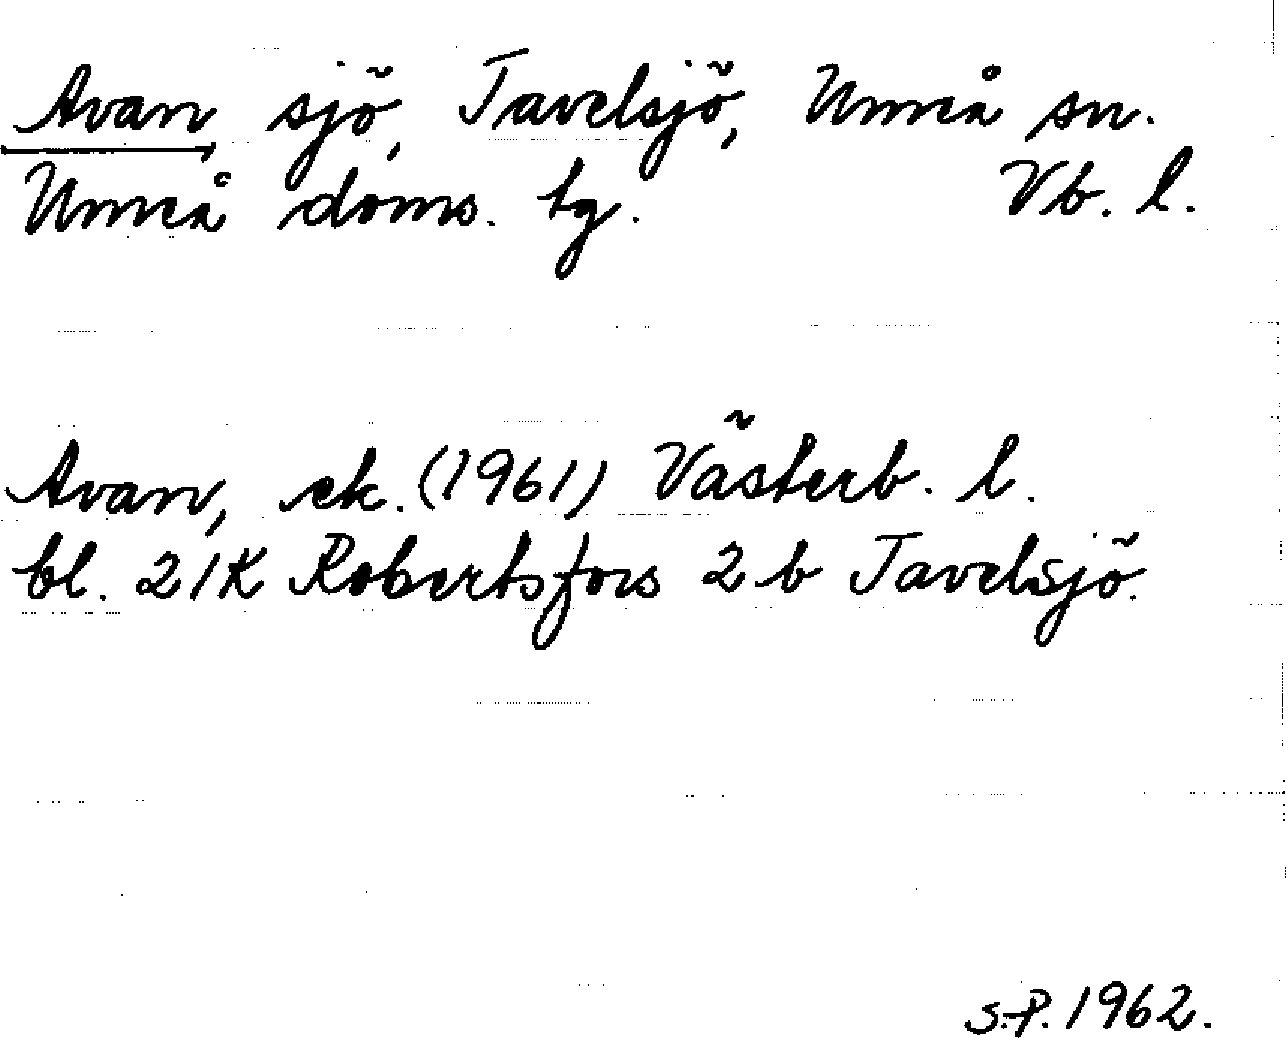 Avan sjö, Tavelsjö, Umeå sn.
Umeå doms. tg. Vb. l.
Avan, ek. (1961) Västerb. l.
bl. 21K Robertsfors 2 b Tavelsjö.
S.P. 1962.